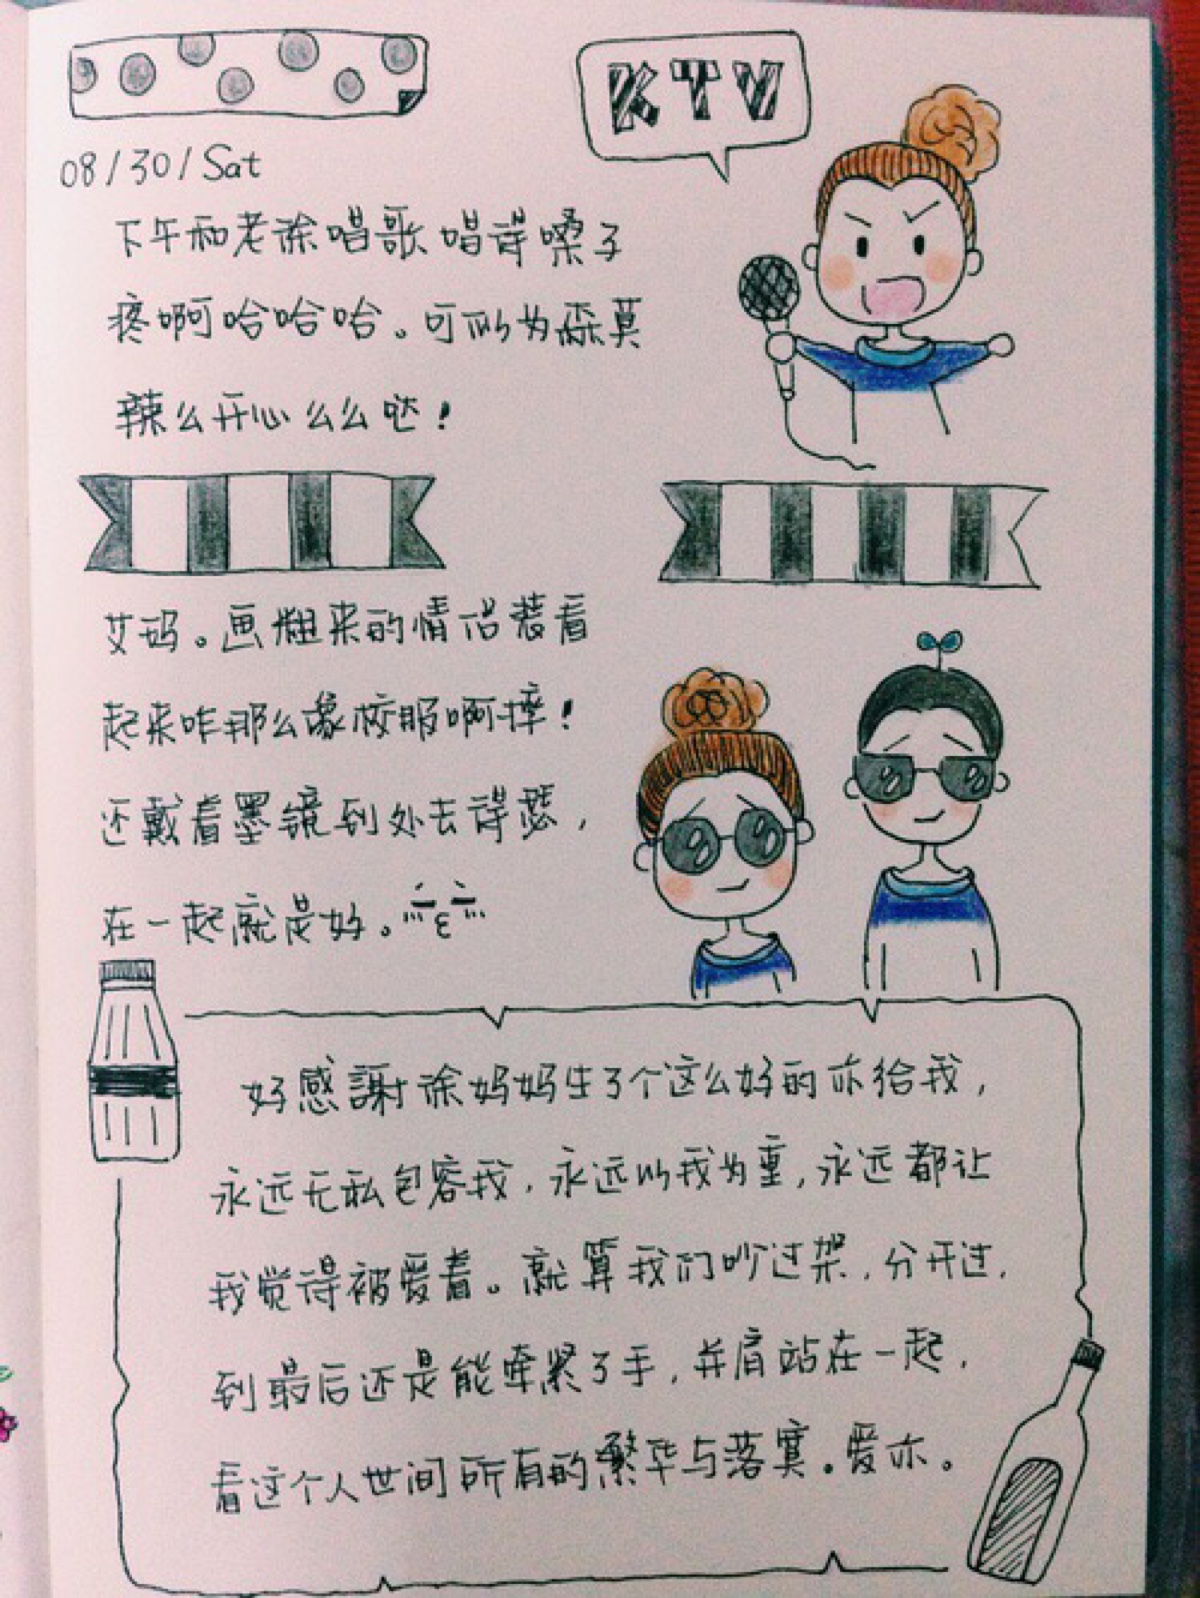 KTV
08/30/Sat
下午和老徐唱歌唱得嗓子
疼啊哈哈哈。可以为森莫
辣么开心么么哒!
艾玛。画粗来的情侣装看
起来咋那么像校服啊摔!
还戴着墨镜到处去得瑟,
在一起就是好。
好感謝徐妈妈生了个这么好的亦给我,
永远无私包容我,永远以我为重,永远都让
我觉得被爱着。就算我们吵过架,分开过,
到最后还是能牵紧了手,并肩站在一起,
看这个人世间所有的繁华与落寞。爱亦。